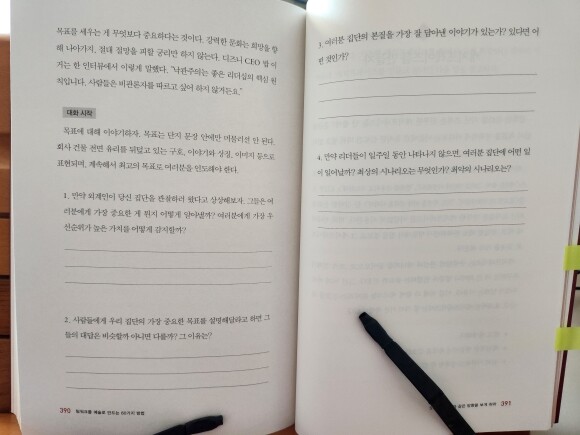 목표를 세우는 게 무엇보다 중요하다는 것이다. 강력한 문화는 희망을 향
해 나아가지, 절대 절망을 피할 궁리만 하지 않는다. 디즈니 CEO 밥 이
거는 한 인터뷰에서 이렇게 말했다. "낙관주의는 좋은 리더십의 핵심 원
칙입니다. 사람들은 비관론자를 따르고 싶어 하지 않거든요."
대화 시작
목표에 대해 이야기하자. 목표는 단지 문장 안에만 머물러선 안 된다.
회사 건물 전면 유리를 뒤덮고 있는 구호, 이야기와 상징, 이미지 등으로
표현되며, 계속해서 최고의 목표로 여러분을 인도해야 한다.
1. 만약 외계인이 당신 집단을 관찰하러 왔다고 상상해보자. 그들은 여
러분에게 가장 중요한 게 뭔지 어떻게 알아낼까? 여러분에게 가장 우
선순위가 높은 가치를 어떻게 감지할까?
2. 사람들에게 우리 집단의 가장 중요한 목표를 설명해달라고 하면 그
들의 대답은 비슷할까 아니면 다를까? 그 이유는?
390 최적의 팀을 만드는
3. 여러분 집단의 본질을 가장 잘 담아낸 이야기가 있는가? 있다면 어
떤 것인가?
4. 만약 리더들이 일주일 동안 나타나지 않으면, 여러분 집단에 어떤 일
이 일어날까? 최상의 시나리오는 무엇인가? 최악의 시나리오는?
391